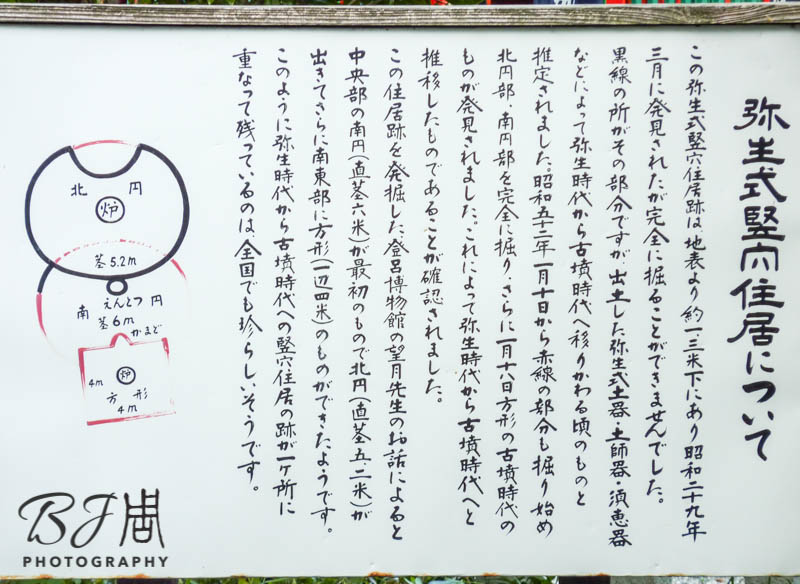 弥生式竪穴住居について
この弥生式竪穴住居跡は、地表より約一、三米下にあり昭和二十九年
三月に発見されたが完全に掘ることができませんでした。
黒線の所がその部分ですが、出土した弥生式土器・土師器・須恵器
などによって弥生時代から古墳時代へ移りかわる頃のものと
推定されました。昭和五十二年一月十日から赤線の部分も掘り始め
北円部、南円部を完全に掘り、さらに一月十八日方形の古墳時代の
ものが発見されました。これによって弥生時代から古墳時代へと
推移したものであることが確認されました。
この住居跡を発掘した、登呂博物館の望月先生のお話によると
中央部の南円(直茎六米)が最初のもので北円(直茎五、二米)が
出きてさらに南東部に方形(一辺四米)のものができたようです。
このように弥生時代から古墳時代への竪穴住居の跡が一ヶ所に
重なって残っているのは、全国でも珍らしいそうです。
北 円
炉
茎5.2m
えんとつ
南 円
茎6m
かまど
炉
4m
方 形
4m
BJ周
PHOTOGRAPHY